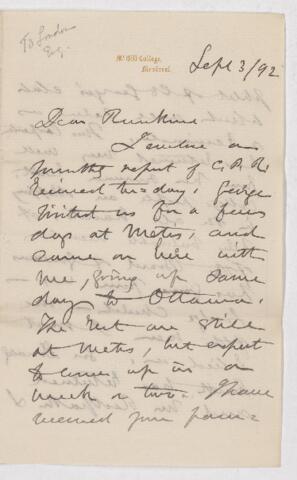 To London
Eng.
McGill College,
Montreal.
Sept 3/92
Dear Rankine
I enclose an
months report of C.P.R.
received to-day. George
visited us for a few
days at Metis, and
came on here with
me, going up same
day to Ottawa.
The rest are still
at Metis, but expect
to come up in a
week or two. I have
received your pam-